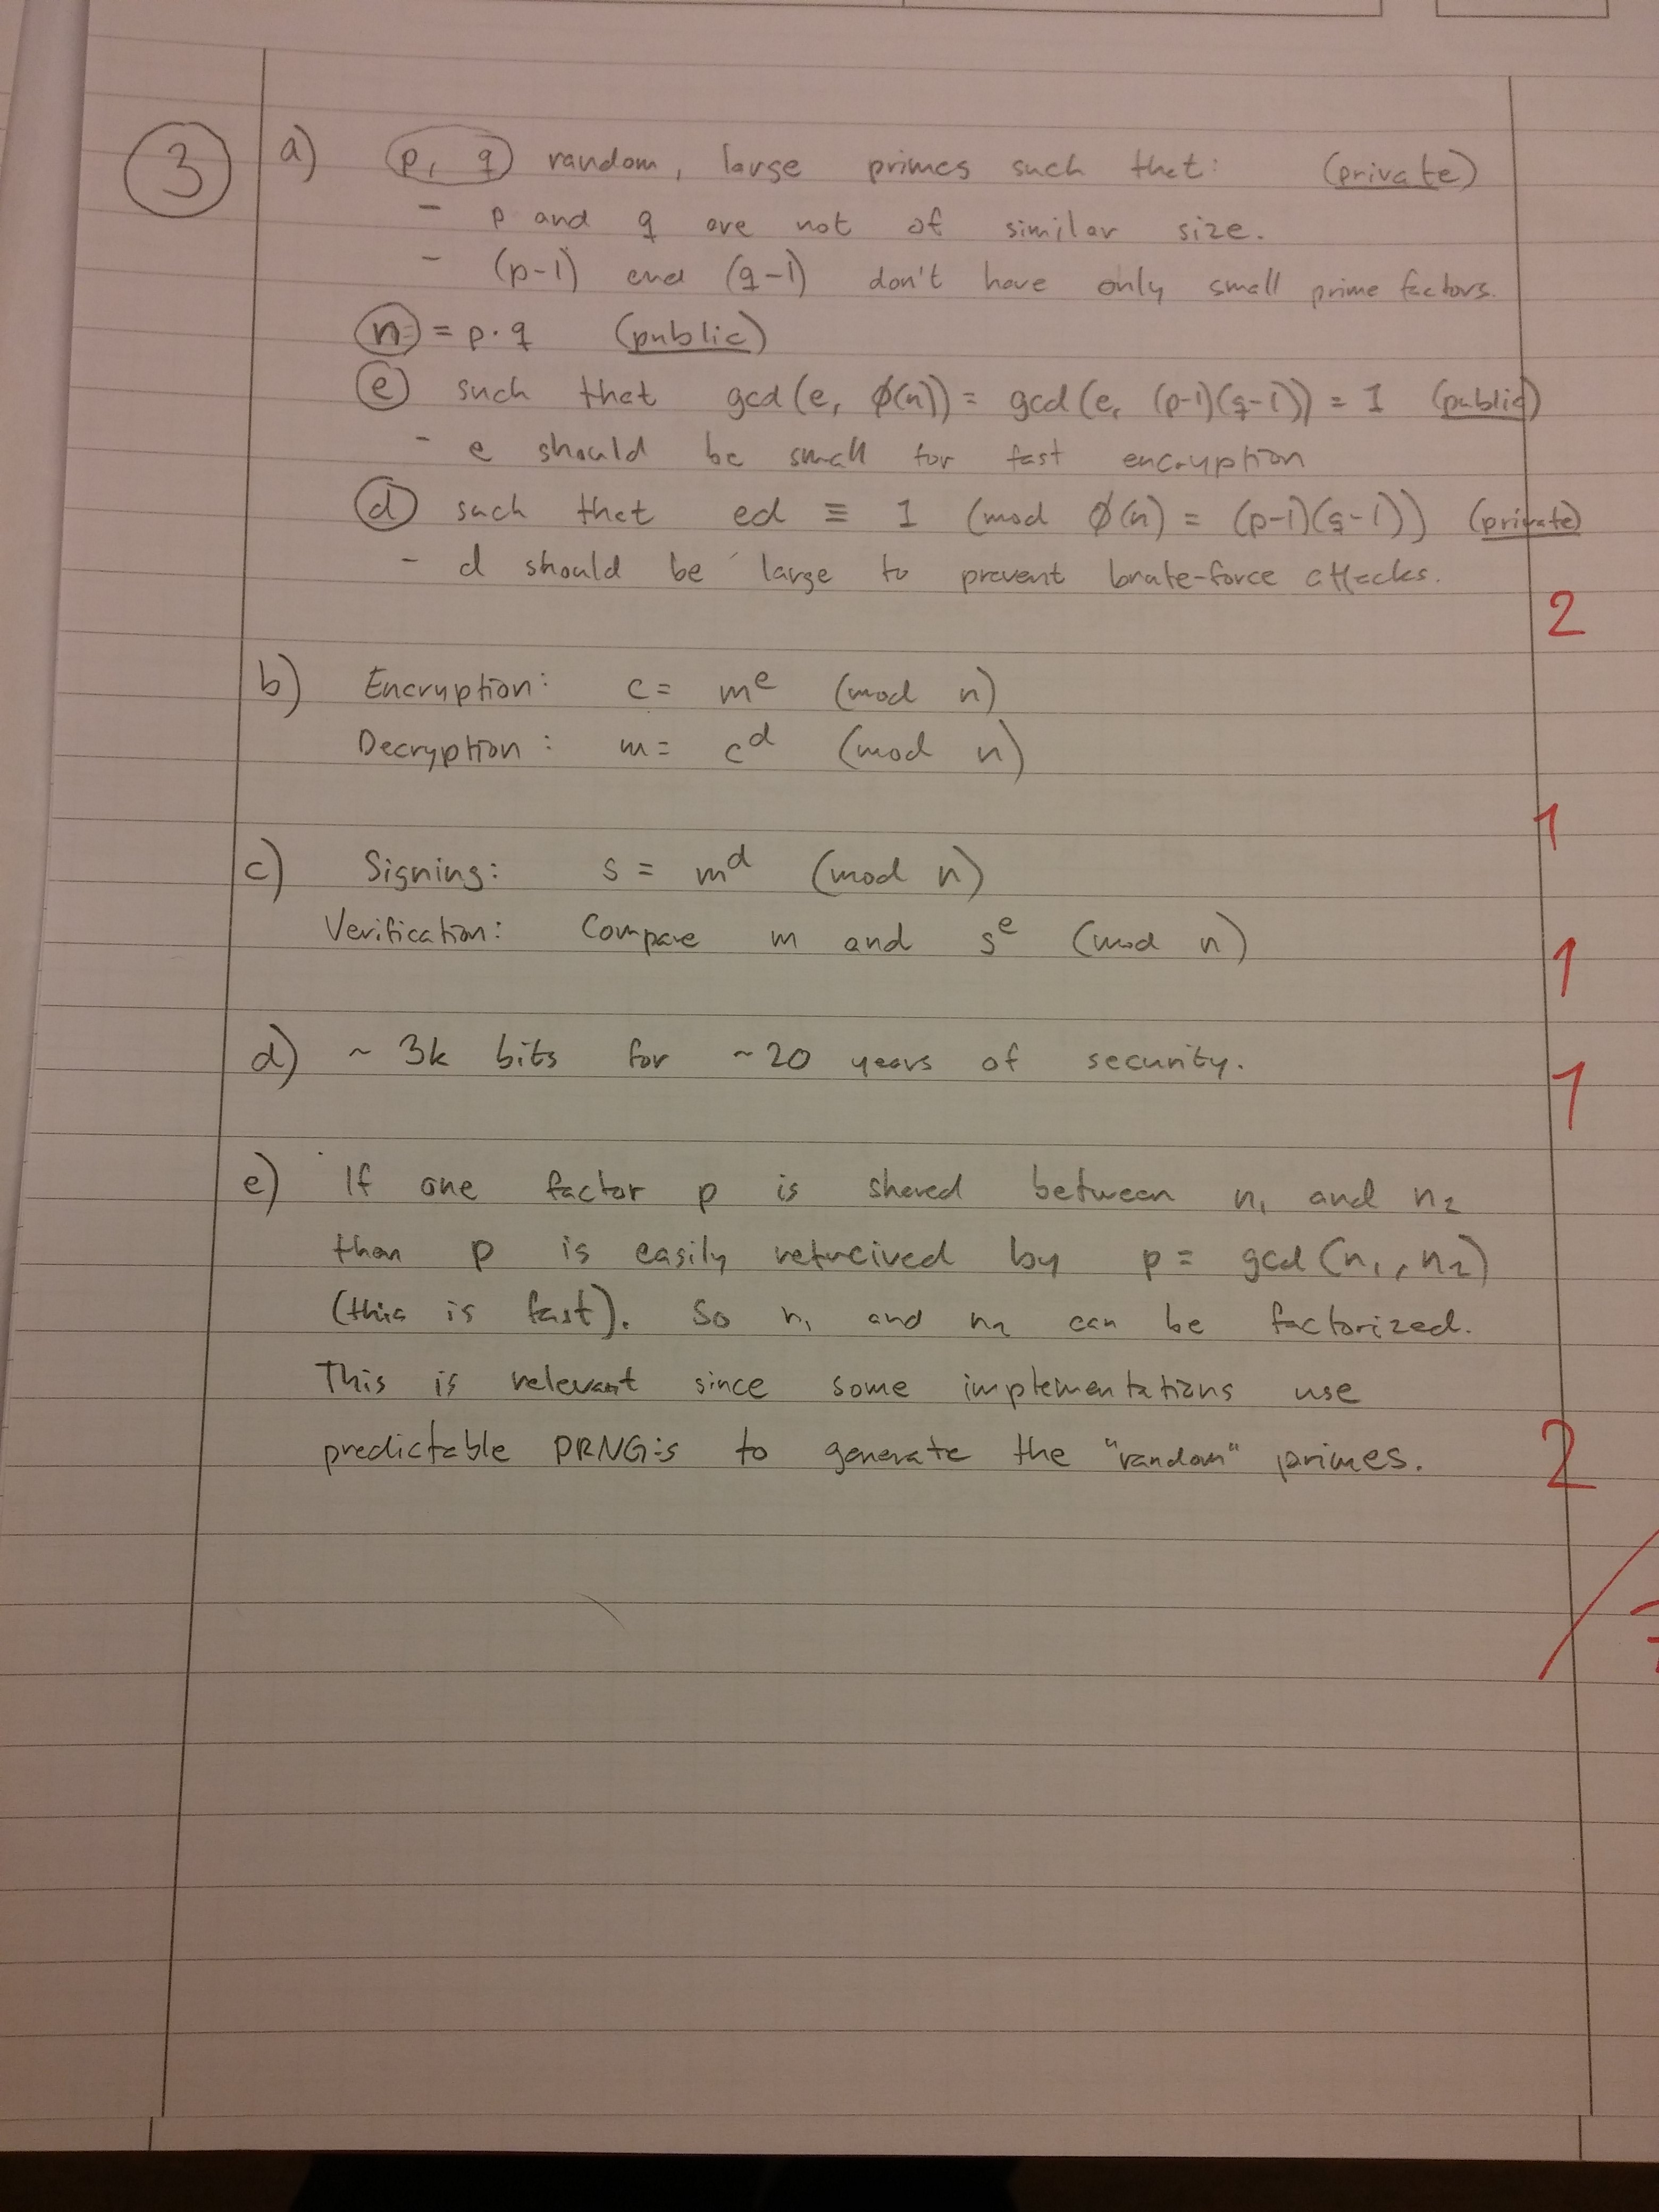 3 a) p, q random, large primes such that: (private)
- p and q are not of similar size.
- (p-1) and (q-1) don't have only small prime factors.
n = p·q (public)
e such that gcd(e, φ(n)) = gcd(e, (p-1)(q-1)) = 1 (public)
- e should be small for fast encryption
d such that ed ≡ 1 (mod φ(n) = (p-1)(q-1)) (private)
- d should be large to prevent brute-force attacks.
2
b) Encryption: c = m^e (mod n)
Decryption: m = c^d (mod n)
1
c) Signing: s = m^d (mod n)
Verification: Compare m and s^e (mod n)
1
d) ~ 3k bits for ~20 years of security.
1
e) If one factor p is shared between n₁ and n₂
then p is easily retrieved by p = gcd(n₁, n₂)
(this is fast). So n₁ and n₂ can be factorized.
This is relevant since some implementations use
predictable PRNG:s to generate the "random" primes.
2